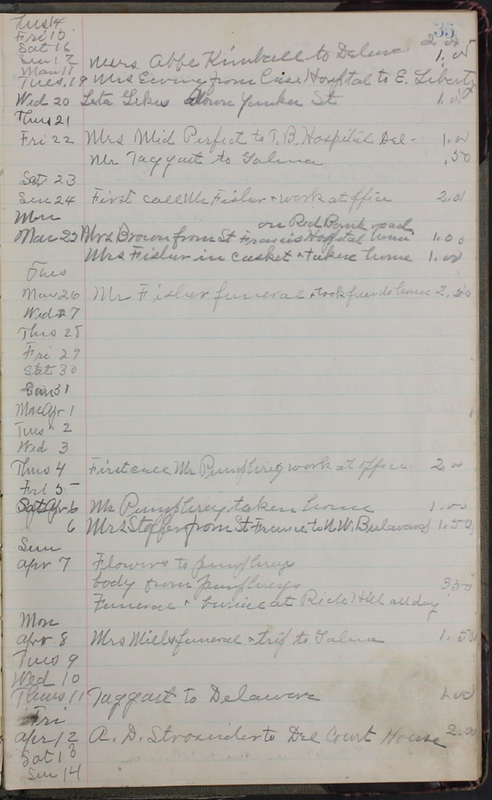 35
Thus 14
Fri 15 2.00
Sat 16
Sun 17 Mrs Abbe Kimball to Delaw 1.00
Tues, 19 Mrs Ewing from Case Hospital to E. Liberty
Wed 20 Yonker St 1.00
Thus 21
Fri 22 Mrs Mid Perfect to T.B. Hospital Del- 1.00
Mr Taggart to Galena .50
Sat 23
Sun 24 First call Mr Fisher & work at office 2.00
Mon
on Red Bank road
Mar 25 Mrs Brown from St Francis Hospital home 1.00
Mrs Fisher in casket & taken home 1.00
Tues
Mar 26 Mr Fisher funeral & took home 2.50
Wed 27
Thus 28
Fri 29
Sat 30
Sun 31
Mon Apr 1
Tues 2
Wed 3
Thus 4 First call Mr Pumphrey work at office 2.00
Fri 5
Sat Apr 6 Mr Pumphrey taken home 1.00
6 Mrs Stoffer from St Francis to N.W. Bulavard 1.50
Sun
Apr 7 Flowers to pumphreys
body from pumphreys 3.50
Funeral & buriel at Rich Hill all day
Mon
Apr 8 Mrs Mills funeral & trip to Galena 1.50
Tues 9
Wed 10
Thurs 11 Taggart to Delaware 1.00
Fri
Apr 12 A. D. Strosnider to Del Court House 2.00
Sat 13
Sun 14